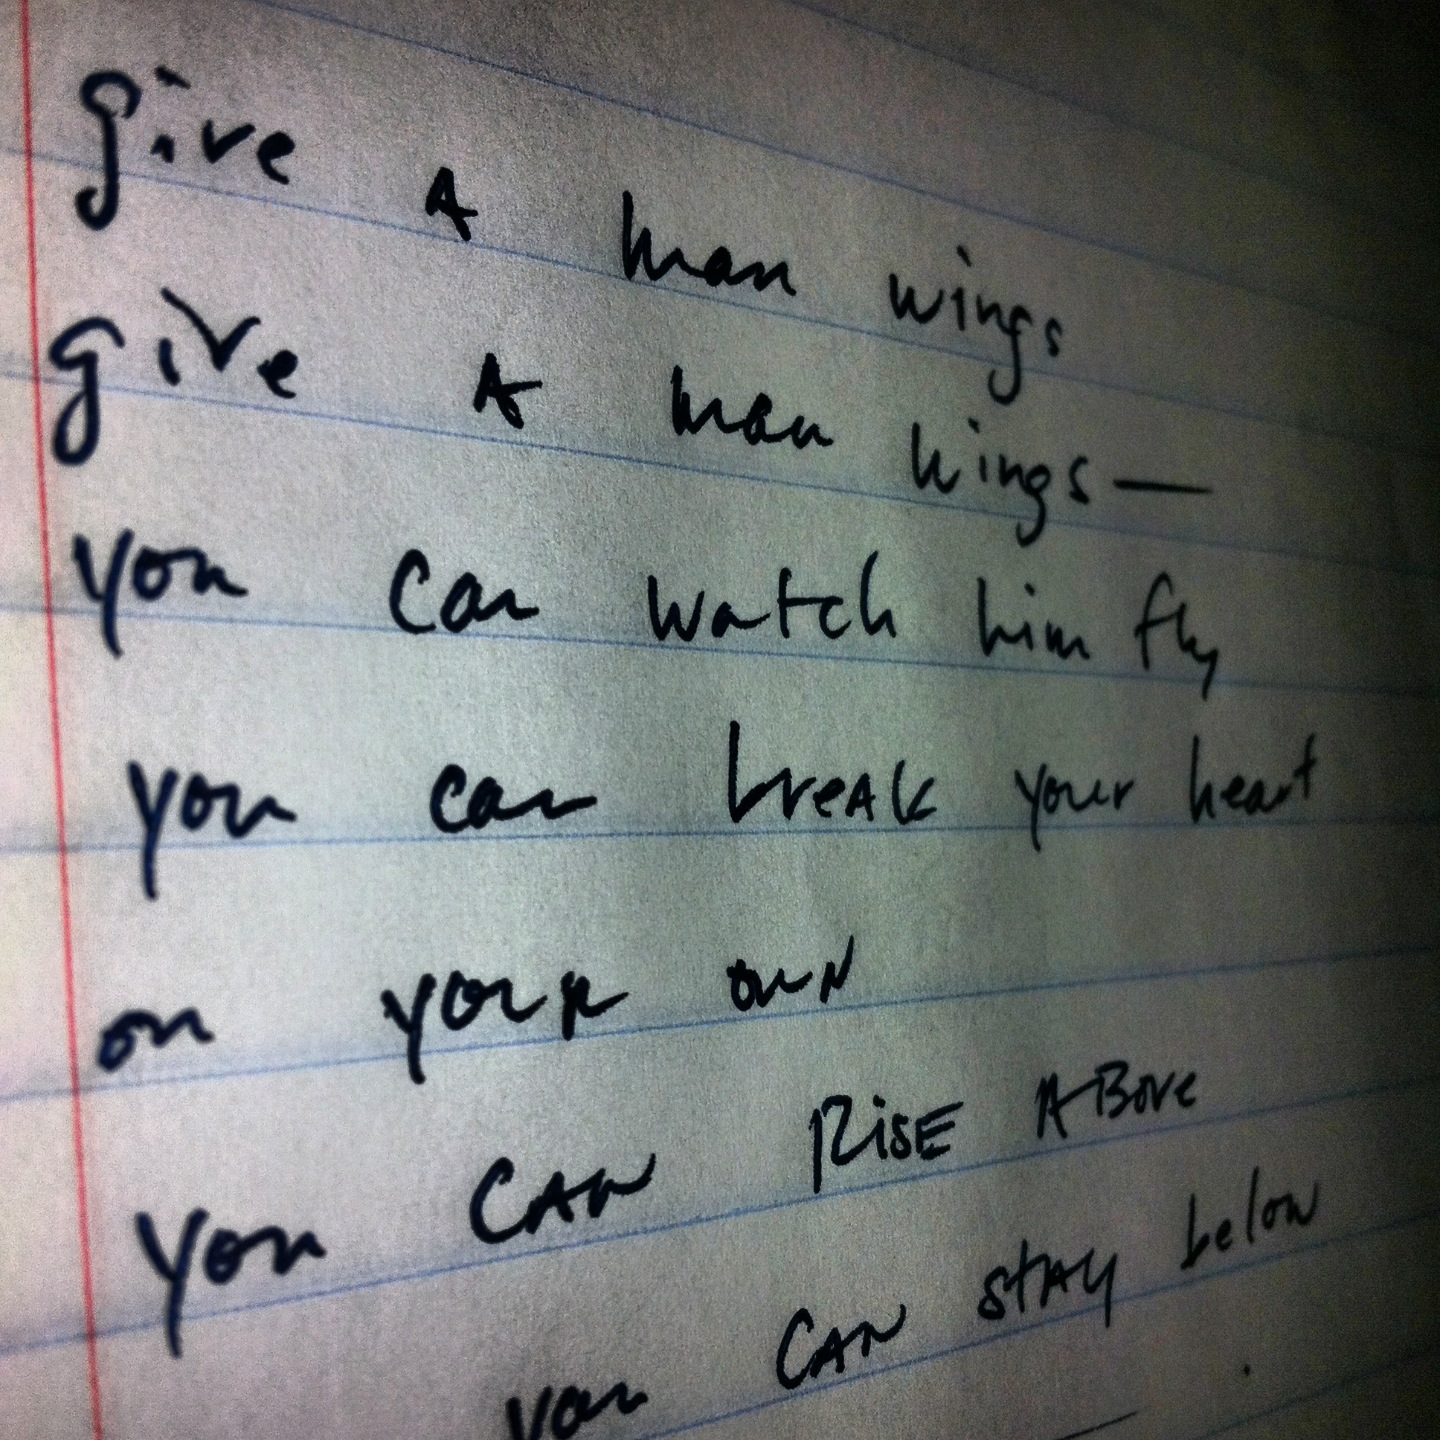 give A man wings
give A man wings—
you can watch him fly
you can break your heart
on your own
you CAN RISE ABOve
you CAN stAy below